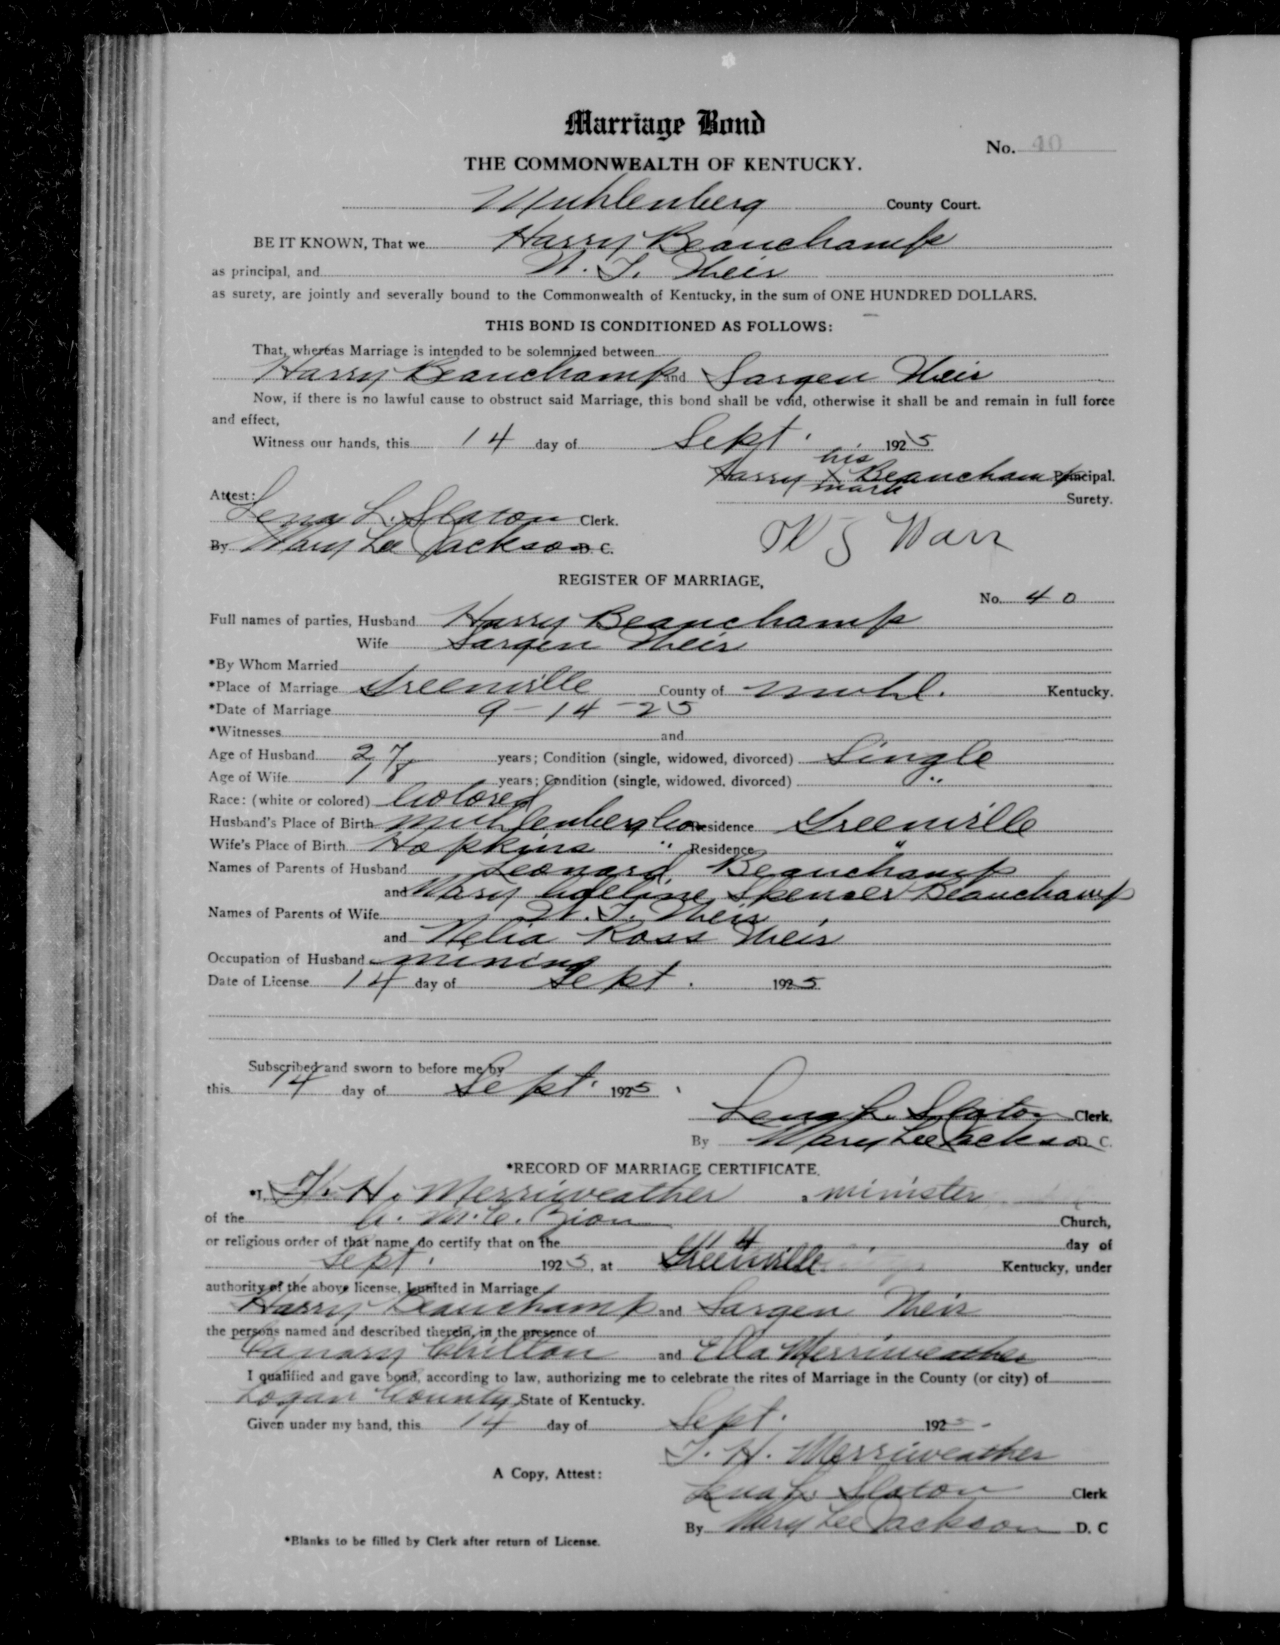 Marriage Bond
No. 40
THE COMMONWEALTH OF KENTUCKY.
Muhlenberg County Court.
BE IT KNOWN, That we Harry Beauchamp
as principal, and W. T. Weir
as surety, are jointly and severally bound to the Commonwealth of Kentucky, in the sum of ONE HUNDRED DOLLARS.
THIS BOND IS CONDITIONED AS FOLLOWS:
That, whereas Marriage is intended to be solemnized between
Harry Beauchamp and Sargen Weir
Now, if there is no lawful cause to obstruct said Marriage, this bond shall be void, otherwise it shall be and remain in full force
and effect,
Witness our hands, this 14 day of Sept. 1925
his
Harry X Beauchamp Principal.
mark
Attest: Surety.
Lena L. Slaton Clerk.
By Mary Lee Jackson D. C.
REGISTER OF MARRIAGE,
No. 40
Full names of parties, Husband Harry Beauchamp
Wife Sargen Weir
*By Whom Married
*Place of Marriage Greenville County of Muhl. Kentucky.
*Date of Marriage 9-14-25
*Witnesses and
Age of Husband 27 years; Condition (single, widowed, divorced) Single
Age of Wife 18 years; Condition (single, widowed, divorced) "
Race: (white or colored) Colored
Husband's Place of Birth Muhlenberg Co. Residence Greenville
Wife's Place of Birth Hopkins " Residence "
Names of Parents of Husband Leonard Beauchamp
and Mary Adeline Spencer Beauchamp
Names of Parents of Wife W. T. Weir
and Nelia Ross Weir
Occupation of Husband mining
Date of License 14 day of Sept. 1925
Subscribed and sworn to before me by
this 14 day of Sept. 1925.
Lena L. Slaton Clerk.
By Mary Lee Jackson D. C.
*RECORD OF MARRIAGE CERTIFICATE.
*I, T. H. Merriweather, minister
of the A. M. E. Zion Church,
or religious order of that name, do certify that on the 14 day of
Sept. 1925, at Greenville Kentucky, under
authority of the above license, I united in Marriage
Harry Beauchamp and Sargen Weir
the persons named and described therein, in the presence of
Canary Chilton and Ella Merriweather
I qualified and gave bond, according to law, authorizing me to celebrate the rites of Marriage in the County (or city) of
Logan County, State of Kentucky.
Given under my hand, this 14 day of Sept. 1925.
T. H. Merriweather
A Copy, Attest:
Lena L. Slaton Clerk
By Mary Lee Jackson D. C
*Blanks to be filled by Clerk after return of License.